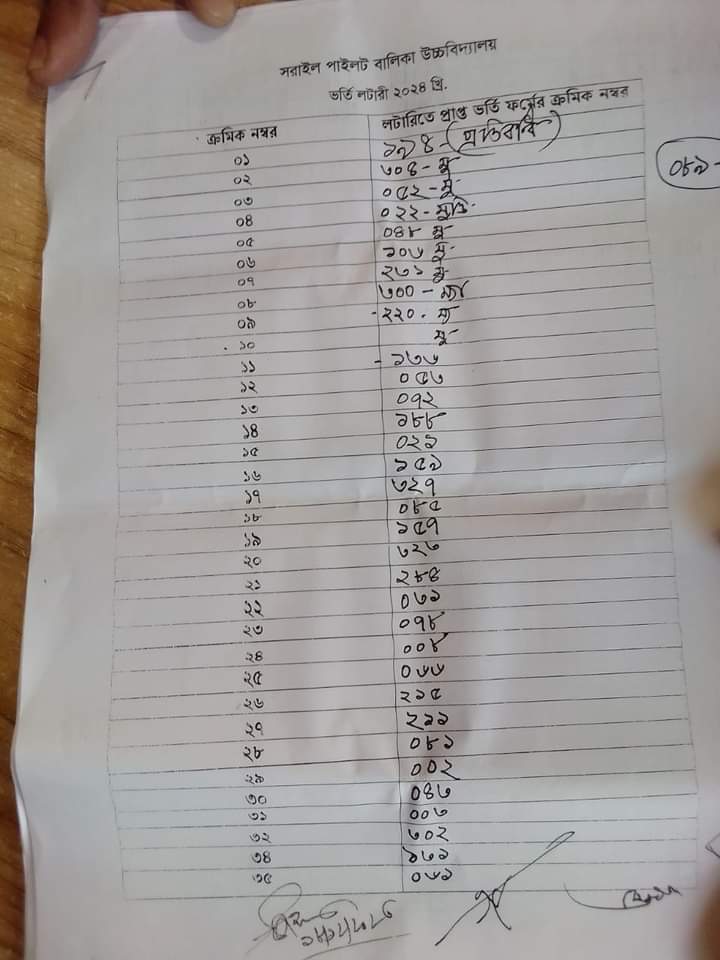 সরাইল পাইলট বালিকা উচ্চবিদ্যালয়
ভর্তি লটারী ২০২৪ খ্রি.
ক্রমিক নম্বর লটারিতে প্রাপ্ত ভর্তি ফর্মের ক্রমিক নম্বর
০১ ১৯৪ - (প্রতিবন্ধি)
০২ ৩০৪ - মু
০৩ ০৫২ - মু
০৪ ০২২ - মুক্তি
০৫ ০৪৮ মু
০৬ ১০৬ মু
০৭ ২৩১ মু
০৮ ৩০০ -
০৯ - ২২০ -
১০ মু
১১ - ১৩৬
১২ ০৫৩
১৩ ০৭২
১৪ ১৮৮
১৫ ০২১
১৬ ১৫৯
১৭ ৩২৭
১৮ ০৮৫
১৯ ১৫৭
২০ ৩২৩
২১ ২৮৪
২২ ০৩১
২৩ ০৭৮
২৪ ০০৮
২৫ ০৬৬
২৬ ২১৫
২৭ ২১১
২৮ ০৮১
২৯ ০০২
৩০ ০৪৩
৩১ ০০৩
৩২ ৩০২
৩৪ ১৩১
৩৫ ০৬১
০৮৯ -